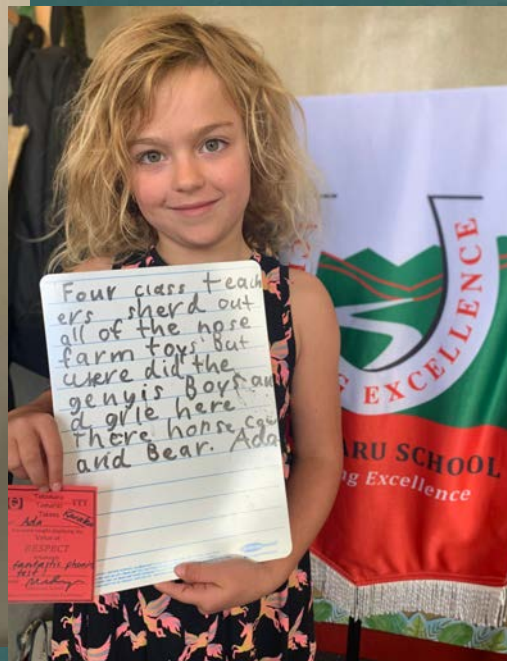 Four class teach
ers sherd out
all of the nose
farm toys but
were did the
genyis Boys an
d gyle here
There horse, Cow
and Bear. Ada
Tamariki
Takaro
Ada
Value of
RESPECT
fantastic phonics
test!
EXCELLENCE
ARU SCHOOL
ng Excellence